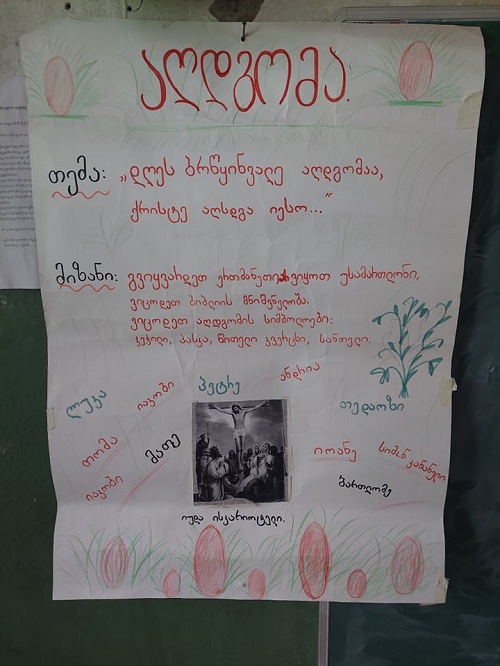 აღდგომა.
თემა: „დღეს ბრწყინვალე აღდგომაა,
ქრისტე აღსდგა იესო..."
მიზანი: გვიყვარდეთ ერთმანეთი, არ ვიყოთ უსამართლონი,
ვიცოდეთ ბიბლიის მნიშვნელობა.
ვიცოდეთ აღდგომის სიმბოლოები:
ჯეჯილი, პასკა, წითელი კვერცხი, სანთელი.
ლუკა
იაკობი
პეტრე
ანდრია
თედაოზი
თომა
მათე
იოანე
სიმონ კანანელი
იაკობი
ბართლომე
იუდა ისკარიოტელი.